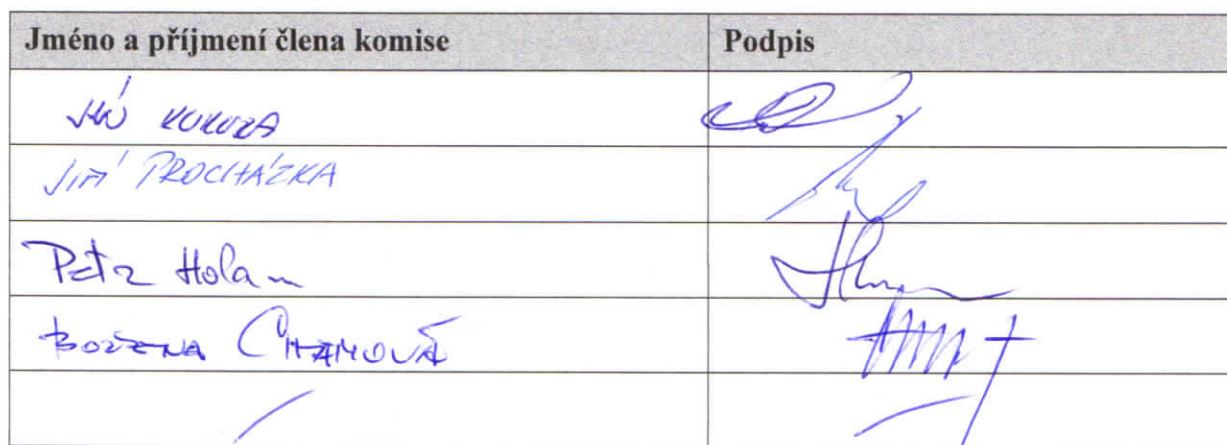 Jméno a příjmení člena komise Podpis
JÁN KUKUZA
JIŘÍ PROCHÁZKA
Petr Holan
BOŽENA